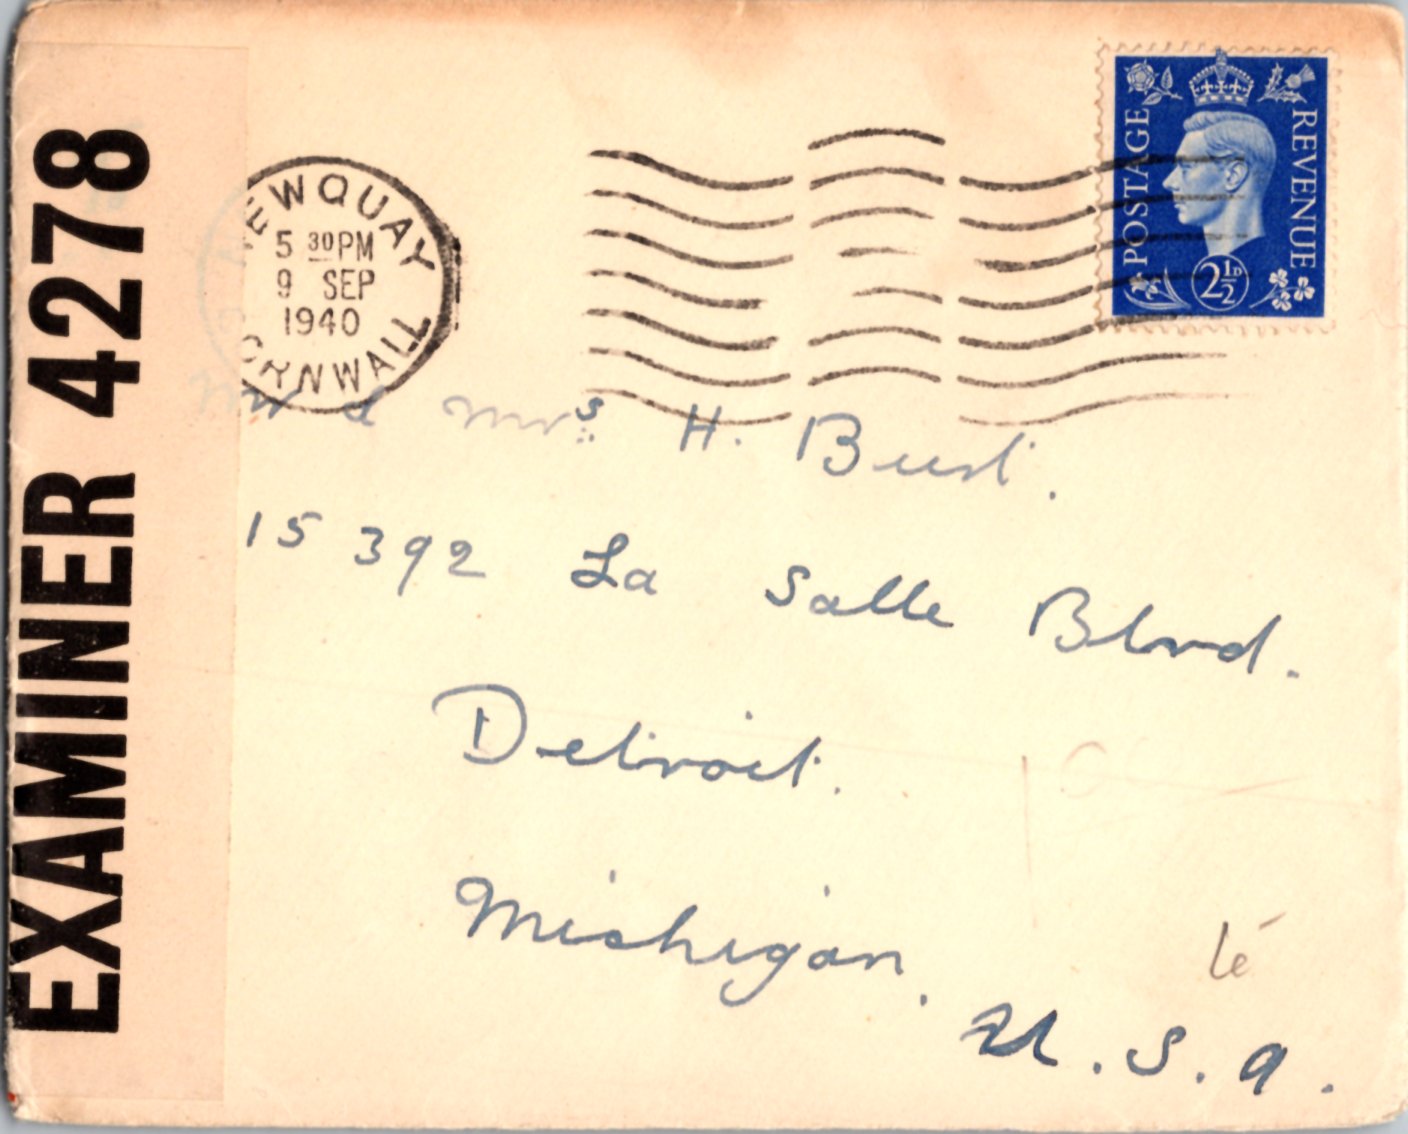 EXAMINER 4278
NEWQUAY
5 30 PM
9 SEP
1940
CORNWALL
POSTAGE
REVENUE
2½D
Mr & Mrs H. Bust.
15392 La Salle Blvd.
Detroit.
Michigan.
U.S.A.